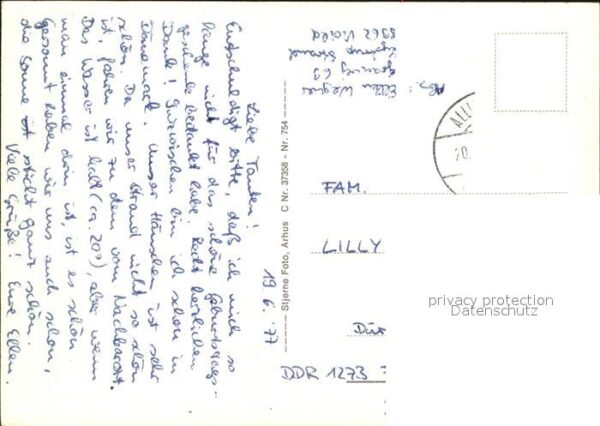 19.6.77
Liebe Tanten!
Entschuldigt bitte, daß ich mich so
lange nicht für das schöne Geburtstags-
geschenk bedankt habe. Recht herzlichen
Dank! Inzwischen bin ich schon in
Dänemark. Unser Häuschen ist sehr
schön. Da unser Strand nicht so schön
ist, fahren wir zu dem vom Nachbarort.
Das Wasser ist kalt (ca. 20°), aber wenn
man einmal drin ist, ist es schön.
Gesonnt haben wir uns auch schon,
die Sonne ist sticht ganz schön.
Viele Grüße! Eure Ellen.
Stjerne Foto, Arhus C Nr. 37358 - Nr. 754
Abs.: Ellen Wegner
63
Strand
ALLI
20.
FAM.
LILLY
DDR 1273
privacy protection
Datenschutz